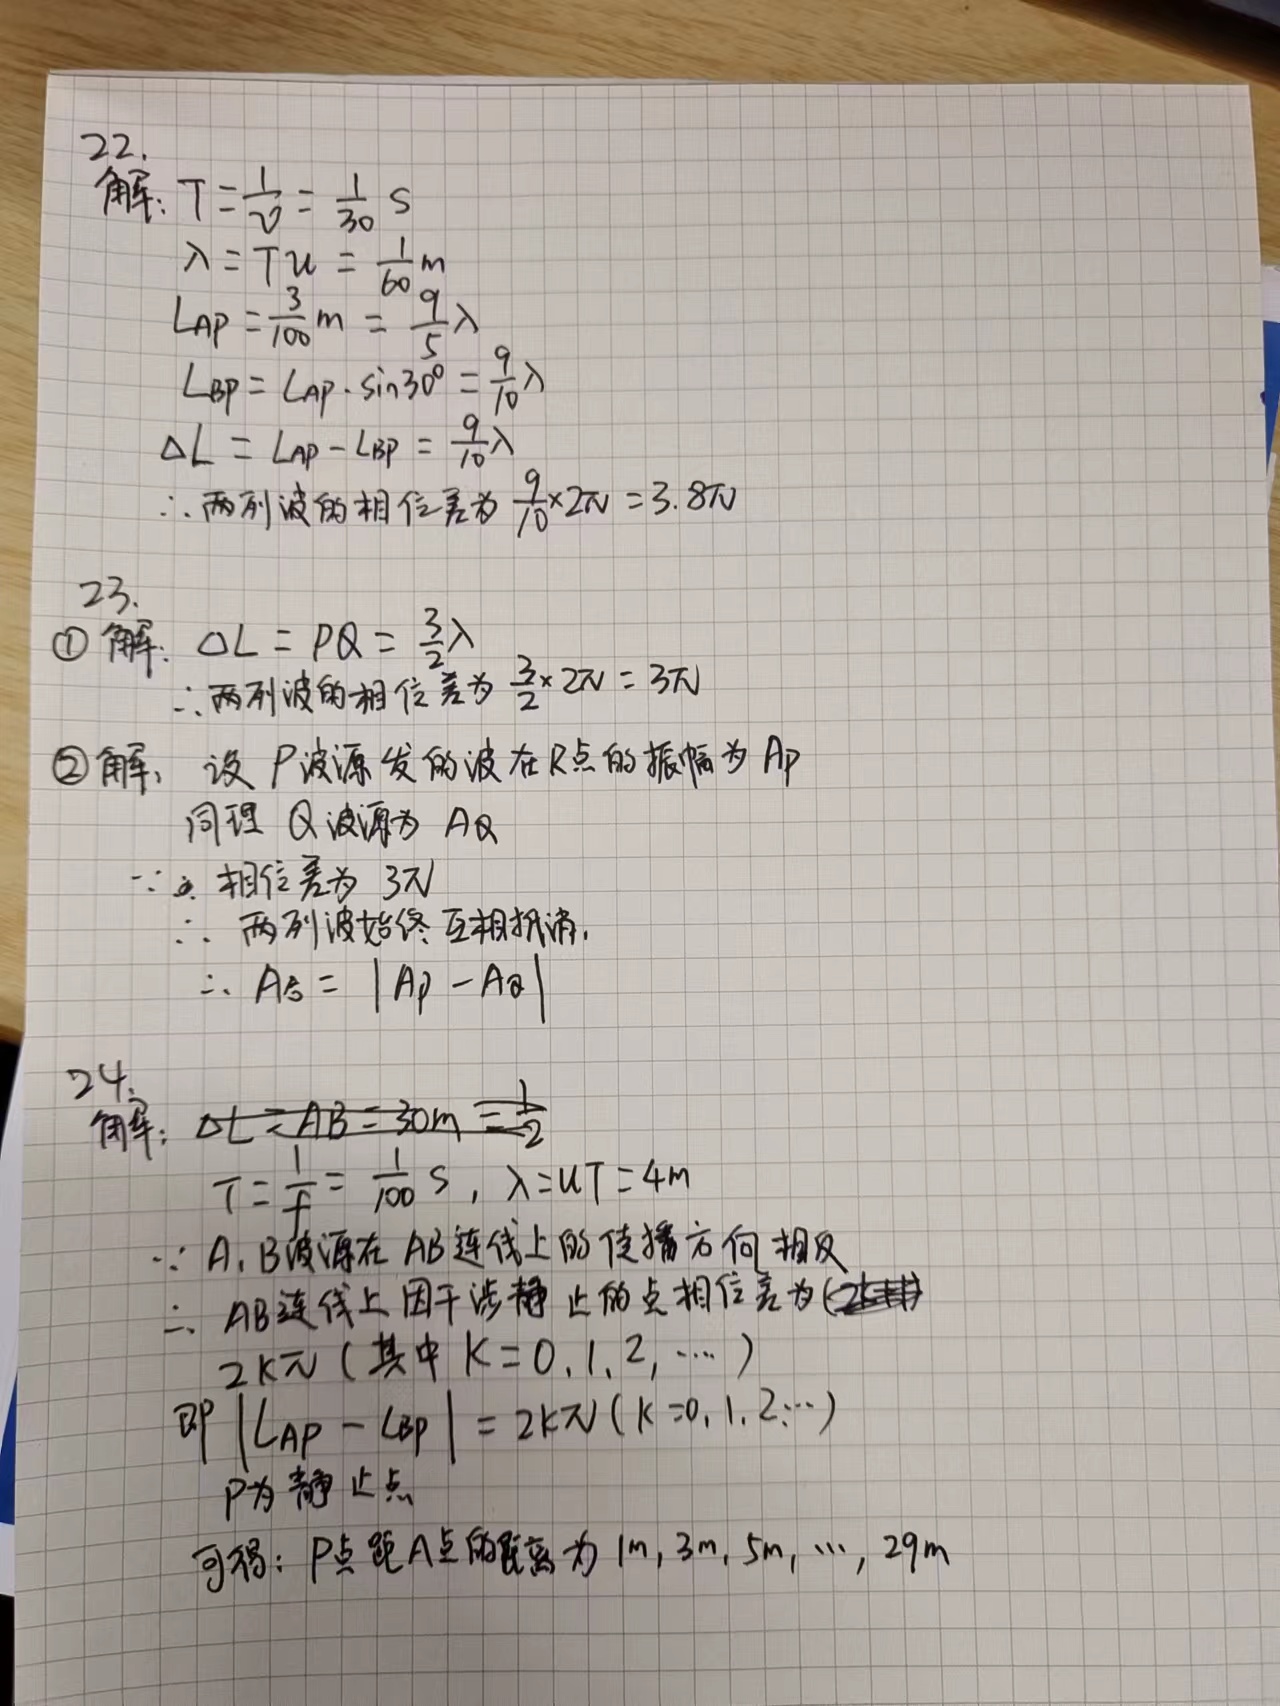 22.
解: T = 1/ν = 1/30 s
λ = Tu = 1/60 m
L_AP = 3/100 m = 9/5 λ
L_BP = L_AP · sin30° = 9/10 λ
ΔL = L_AP - L_BP = 9/10 λ
∴ 两列波的相位差为 9/10 × 2π = 3.8π
23.
① 解: ΔL = PQ = 3/2 λ
∴ 两列波的相位差为 3/2 × 2π = 3π
② 解: 设 P波源发的波在R点的振幅为 A_P
同理 Q波源为 A_Q
∵ 相位差为 3π
∴ 两列波始终互相抵消.
∴ A合 = |A_P - A_Q|
24.
解: ΔL = AB = 30m = 1/2
T = 1/f = 1/100 s, λ = uT = 4m
∵ A, B波源在AB连线上的传播方向相反
∴ AB连线上因干涉静止的点相位差为(
2kπ (其中 K = 0, 1, 2, ····)
即 |L_AP - L_BP| = 2kπ (K = 0, 1, 2···)
P为静止点
可得: P点距A点的距离为 1m, 3m, 5m, ···, 29m